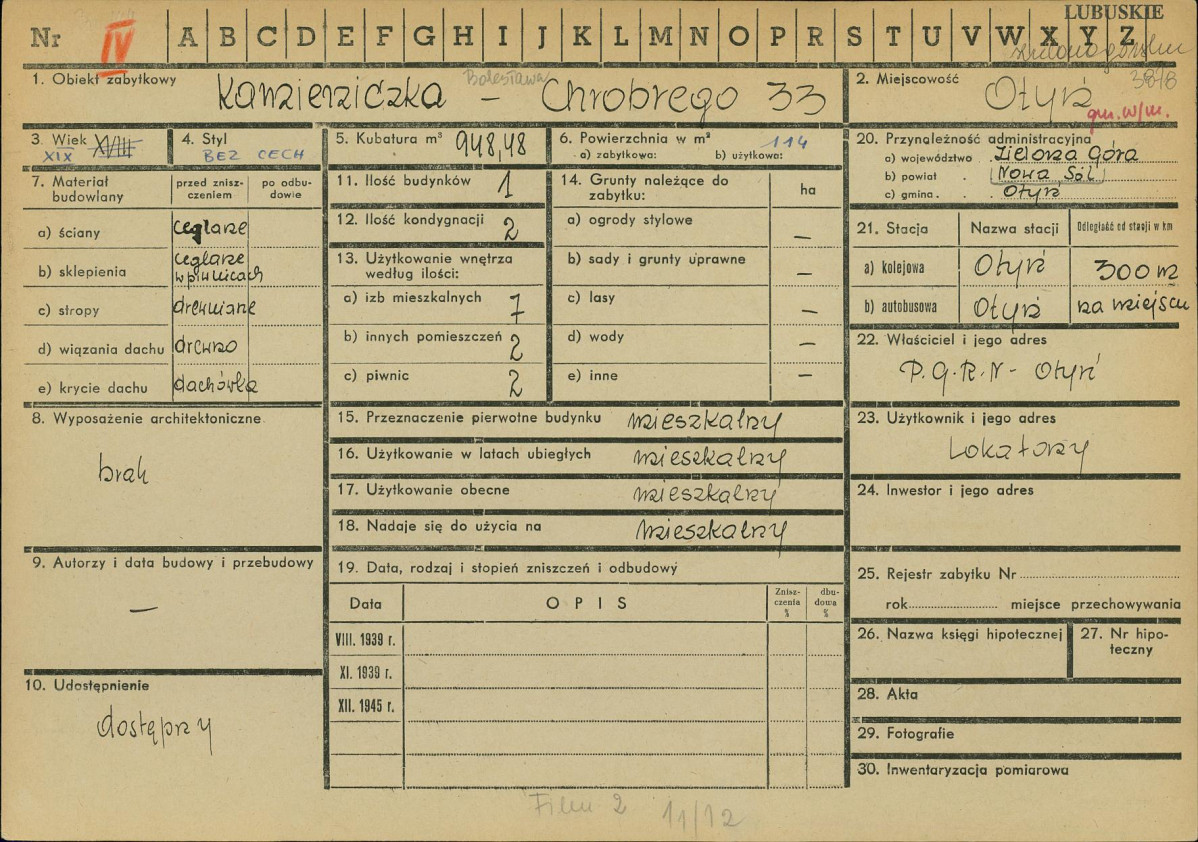 LUBUSKIE
Nr IV A B C D E F G H I J K L M N O P R S T U V W X Y Z
1. Obiekt zabytkowy
Kamieniczka – Bolesława Chrobrego 33
2. Miejscowość
3878
Otyń
gm. w/m.
3. Wiek
XIX XVIII
4. Styl
BEZ CECH
5. Kubatura m³ 948,48
6. Powierzchnia w m² 114
a) zabytkowa: b) użytkowa:
7. Materiał budowlany
przed zniszczeniem
po odbudowie
a) ściany ceglane
b) sklepienia ceglane w piwnicach
c) stropy drewniane
d) wiązania dachu drewno
e) krycie dachu dachówka
8. Wyposażenie architektoniczne
brak
9. Autorzy i data budowy i przebudowy
—
10. Udostępnienie
dostępny
11. Ilość budynków 1
12. Ilość kondygnacji 2
13. Użytkowanie wnętrza według ilości:
a) izb mieszkalnych 7
b) innych pomieszczeń 2
c) piwnic 2
14. Grunty należące do zabytku: ha
a) ogrody stylowe —
b) sady i grunty uprawne —
c) lasy —
d) wody —
e) inne —
15. Przeznaczenie pierwotne budynku mieszkalny
16. Użytkowanie w latach ubiegłych mieszkalny
17. Użytkowanie obecne mieszkalny
18. Nadaje się do użycia na mieszkalny
19. Data, rodzaj i stopień zniszczeń i odbudowy
Data OPIS Zniszczenia % dbudowa %
VIII. 1939 r.
XI. 1939 r.
XII. 1945 r.
20. Przynależność administracyjna
a) województwo Zielona Góra
b) powiat Nowa Sól
c) gmina Otyń
21. Stacja Nazwa stacji Odległość od stacji w km
a) kolejowa Otyń 300 m
b) autobusowa Otyń na miejscu
22. Właściciel i jego adres
P.G.R.N - Otyń
23. Użytkownik i jego adres
Lokatorzy
24. Inwestor i jego adres
25. Rejestr zabytku Nr
rok miejsce przechowywania
26. Nazwa księgi hipotecznej
27. Nr hipoteczny
28. Akta
29. Fotografie
30. Inwentaryzacja pomiarowa
Film 2 11/12